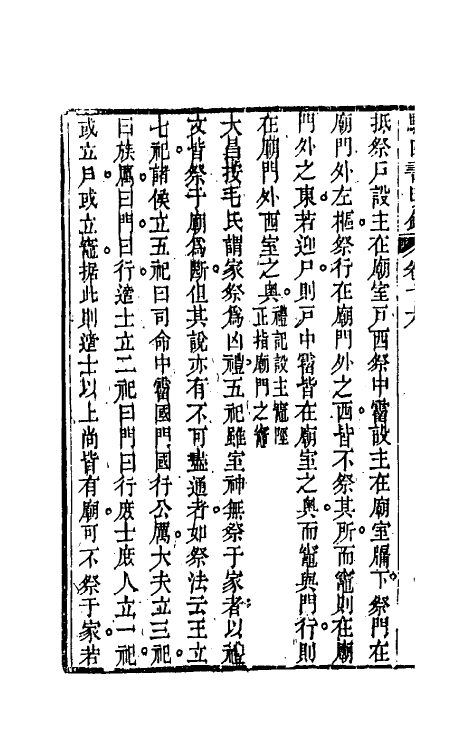 卷十六
抵祭戶設主在廟室戶西祭中霤設主在廟室牖下祭門在
廟門外左樞祭行在廟門外之西皆不祭其所而竈則在廟
門外之東若迎尸則戶中霤皆在廟室之奧而竈與門行則
在廟門外西室之奧禮記設主竈陘正指廟門之竈
大昌按毛氏謂家祭爲凶禮五祀雖室神無祭于家者以禮
文皆祭于廟爲斷但其說亦有不可盡通者如祭法云王立
七祀諸侯立五祀曰司命中霤國門國行公厲大夫立三祀
曰族厲曰門曰行適士立二祀曰門曰行庶士庶人立一祀
或立戶或立竈據此則適士以上尚皆有廟可不祭于家若